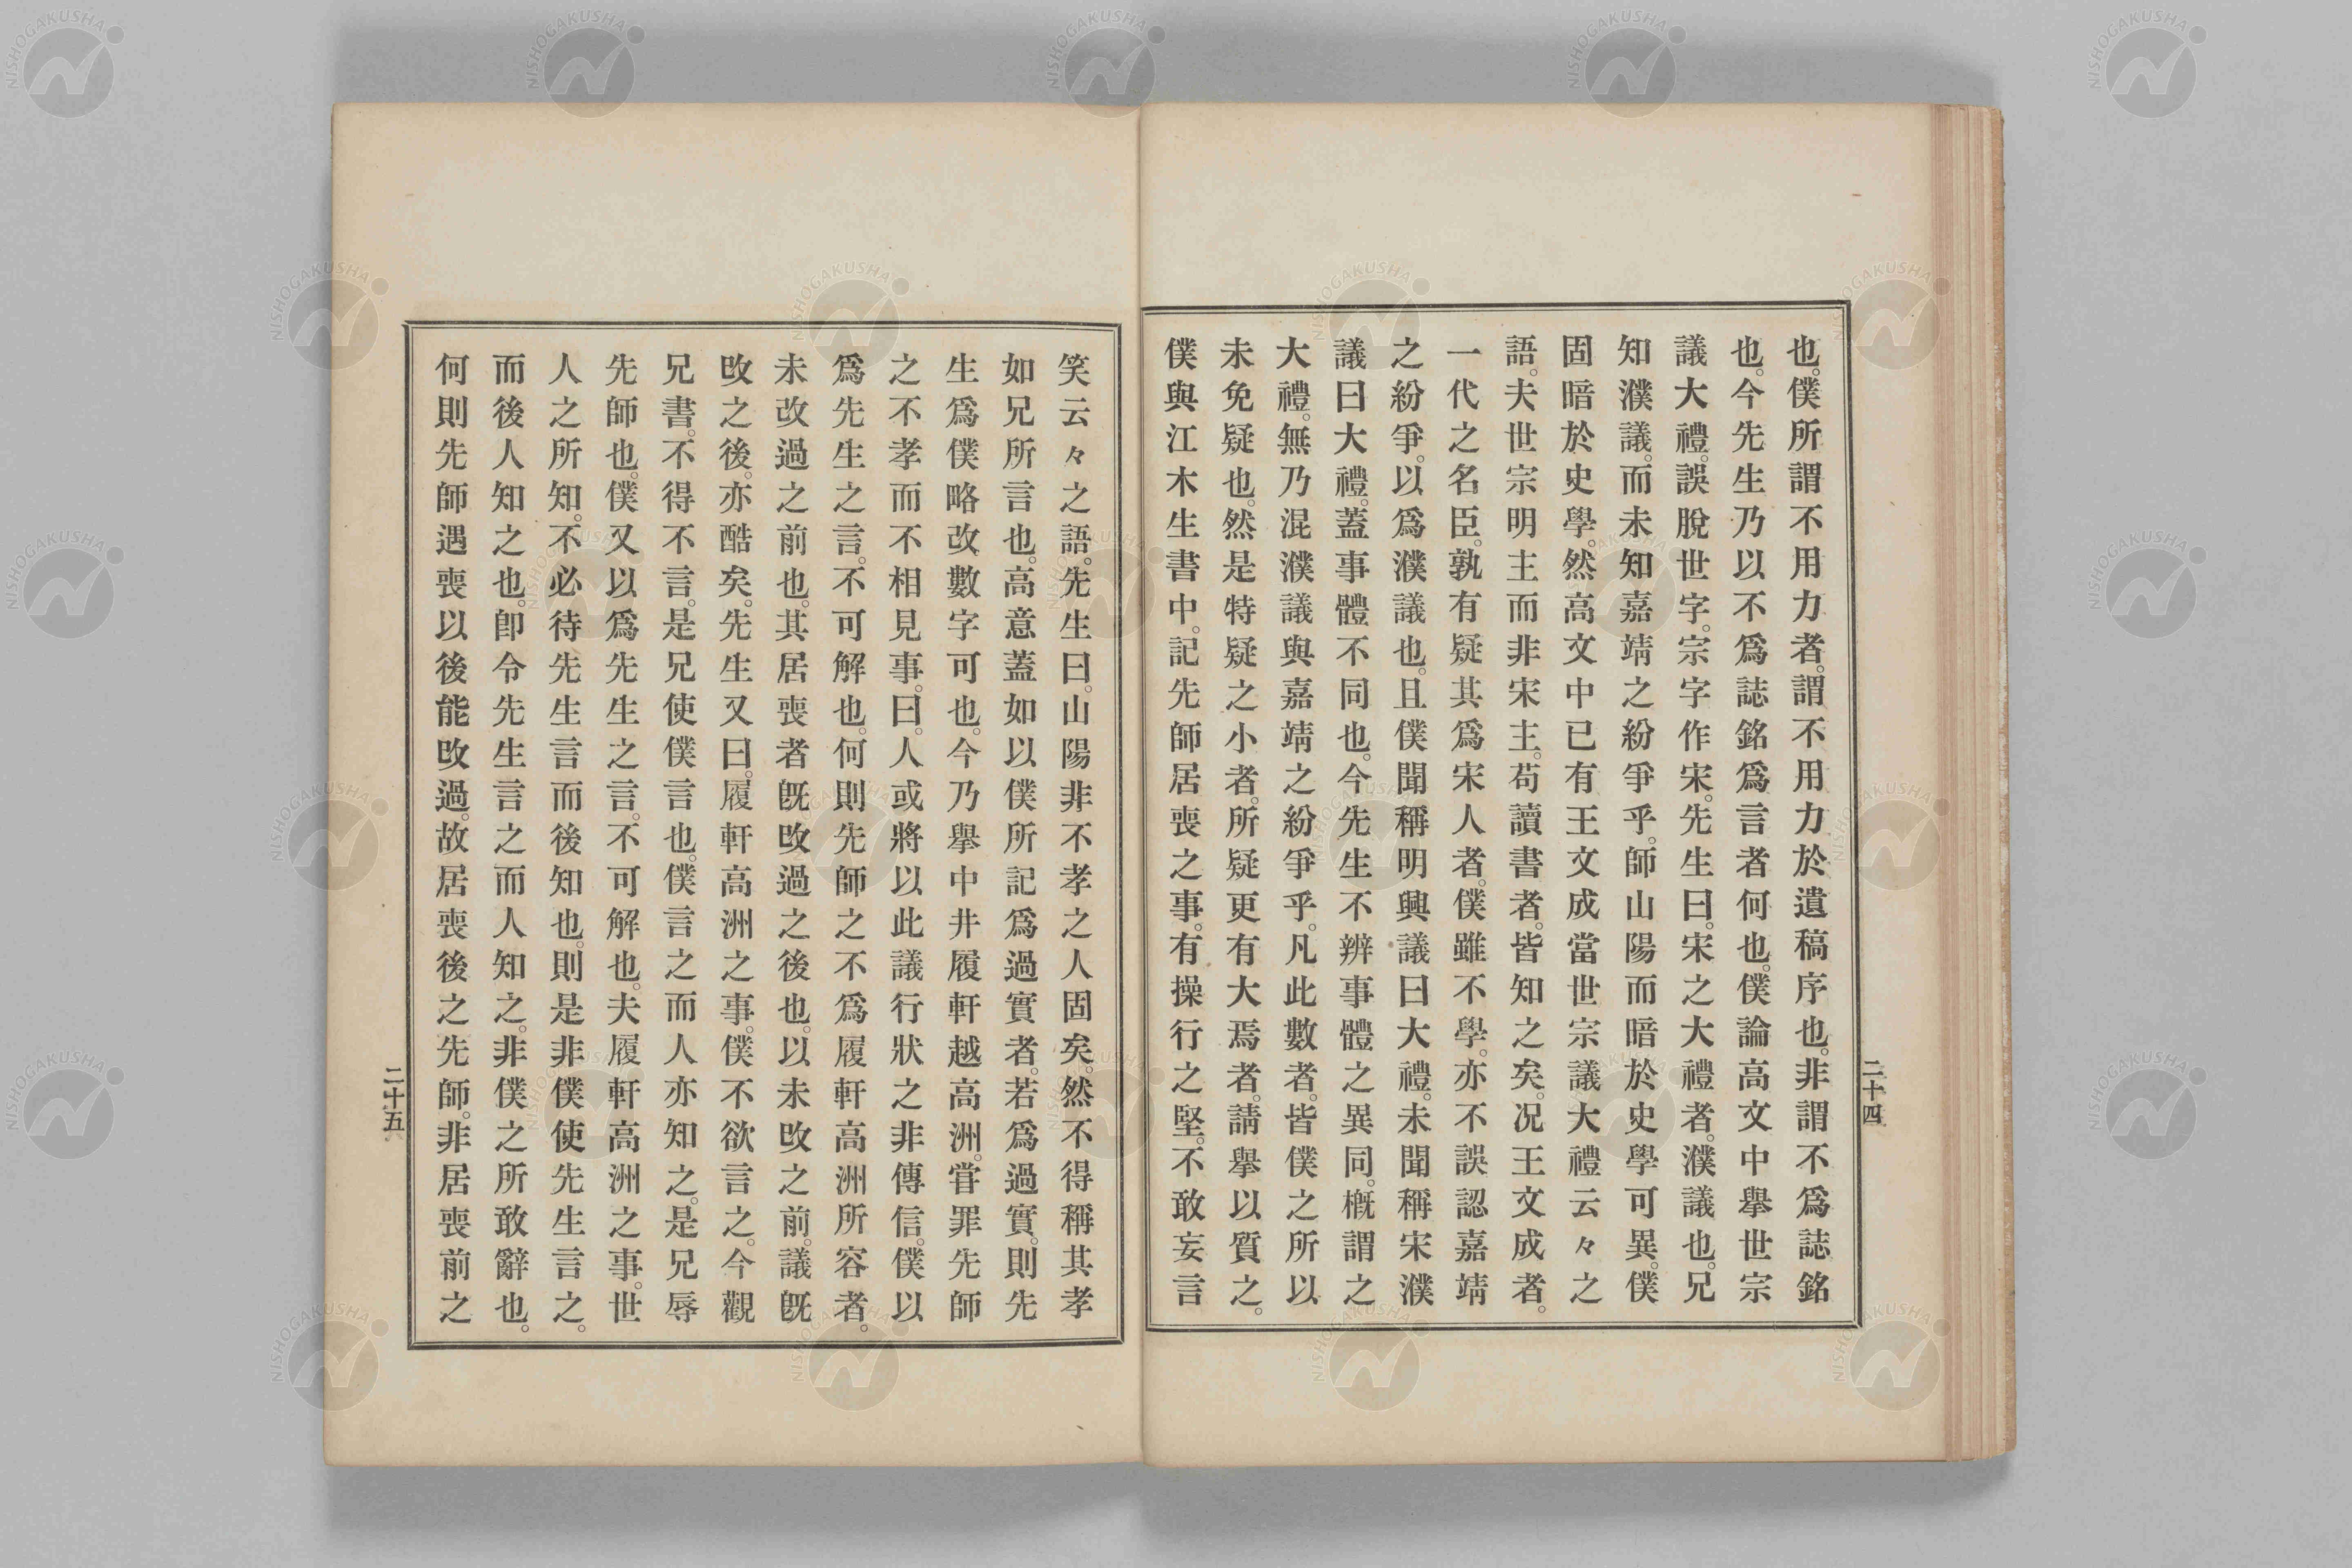 也。僕所謂不用力者。謂不用力於遺稿序也。非謂不爲誌銘
也。今先生乃以不爲誌銘爲言者何也。僕論高文中舉世宗
議大禮。誤脫世字。宗字作宋。先生曰。宋之大禮者。濮議也。兄
知濮議。而未知嘉靖之紛爭乎。師山陽而暗於史學可異。僕
固暗於史學。然高文中已有王文成當世宗議大禮云々之
語。夫世宗明主而非宋主。苟讀書者。皆知之矣。况王文成者。
一代之名臣。孰有疑其爲宋人者。僕雖不學。亦不誤認嘉靖
之紛爭。以爲濮議也。且僕聞稱明興議曰大禮。未聞稱宋濮
議曰大禮。蓋事體不同也。今先生不辨事體之異同。槪謂之
大禮。無乃混濮議與嘉靖之紛爭乎。凡此數者。皆僕之所以
未免疑也。然是特疑之小者。所疑更有大焉者。請擧以質之。
僕與江木生書中。記先師居喪之事。有操行之堅。不敢妄言
二十四
笑云々之語。先生曰。山陽非不孝之人固矣。然不得稱其孝
如兄所言也。高意蓋如以僕所記爲過實者。若爲過實。則先
生爲僕略改數字可也。今乃擧中井履軒越高洲。嘗罪先師
之不孝而不相見事。曰。人或將以此議行狀之非傳信。僕以
爲先生之言。不可解也。何則先師之不爲履軒高洲所容者。
未改過之前也。其居喪者旣改過之後也。以未改之前。議旣
改之後。亦酷矣。先生又曰。履軒高洲之事。僕不欲言之。今觀
兄書。不得不言。是兄使僕言也。僕言之而人亦知之。是兄辱
先師也。僕又以爲先生之言。不可解也。夫履軒高洲之事。世
人之所知。不必待先生言而後知也。則是非僕使先生言之。
而後人知之也。卽令先生言之而人知之。非僕之所敢辭也。
何則先師遇喪以後能改過。故居喪後之先師。非居喪前之
二十五
NISHOGAKUSHA